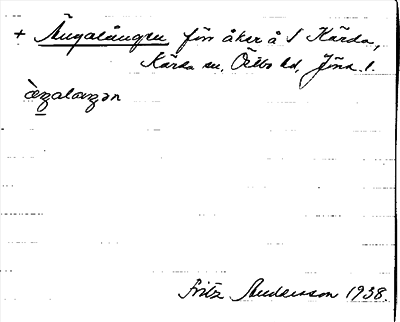 + Ängalången förr åker å S Kärda,
Kärda sn, Östbo hd, Jönk. l.
Fritz Andersson 1938.